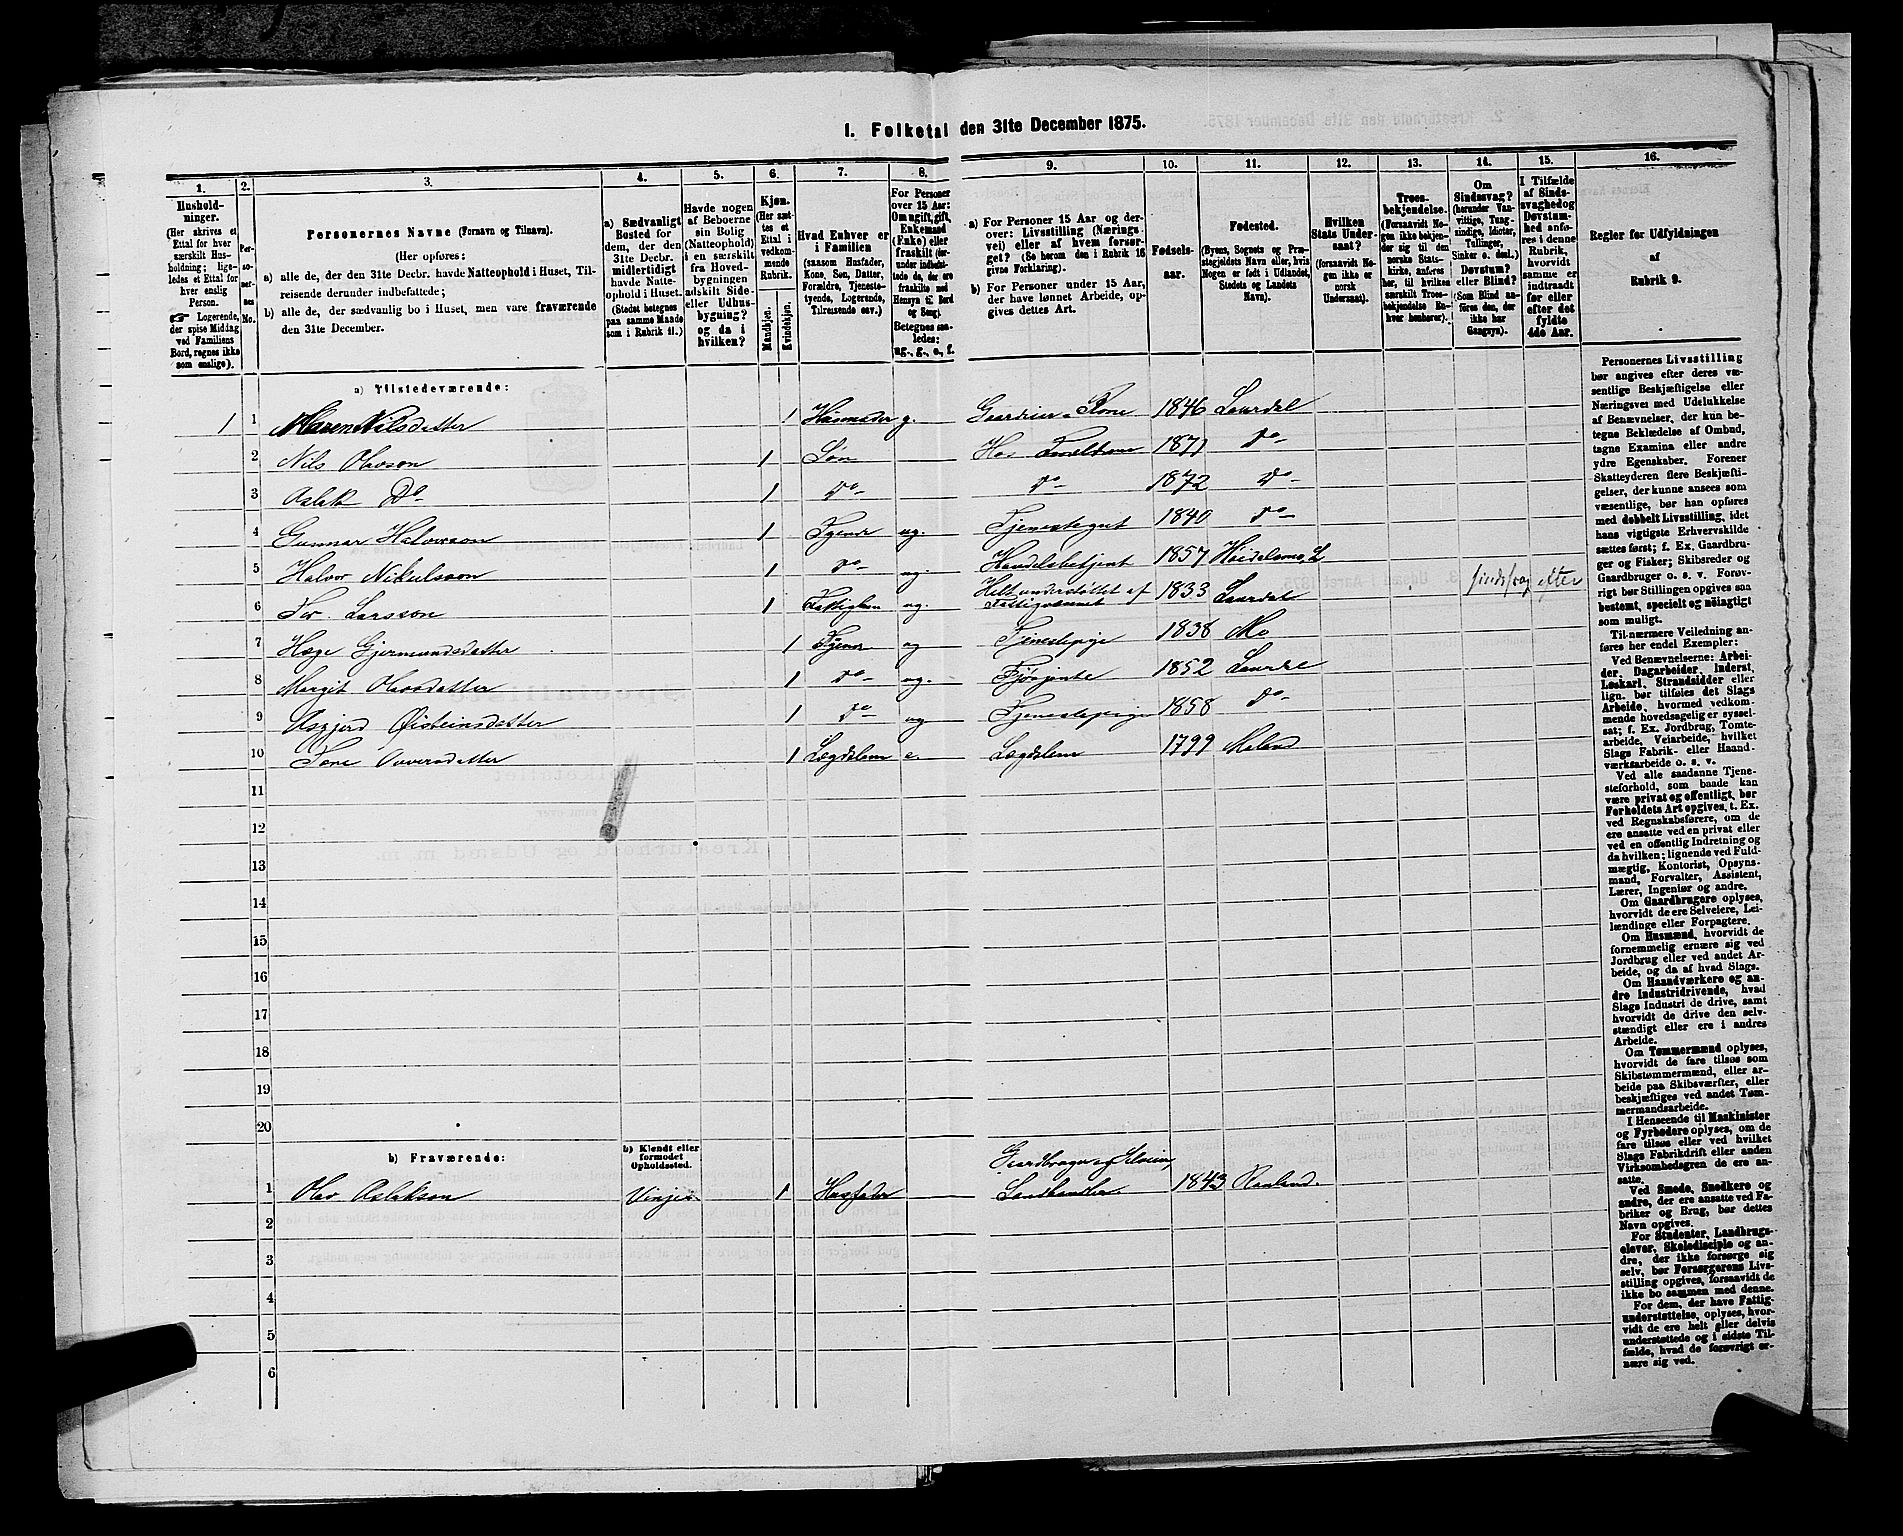 I. Folketal den 31te December 1875.
1. 2. 3. 4. 5. 6. 7. 8. 9. 10. 11. 12. 13. 14. 15. 16.
Hushold-
ninger.
(Her skrives et
Ettal for hver
særskilt Hus-
holdning; lige-
ledes et Ettal for
hver enslig
Person.
☞ Logerende,
der spise Middag
ved Familiens
Bord, regnes ikke
som enslige).
Per-
so-
ner-
nes
No.
Personernes Navne (Fornavn og Tilnavn).
(Her opføres:
a) alle de, der den 31te Decbr. havde Natteophold i Huset, Til-
reisende derunder indbefattede;
b) alle de, der sædvanlig bo i Huset, men vare fraværende
den 31te December.
a) Sædvanligt
Bosted for
dem, der den
31te Decbr.
midlertidigt
havde Natte-
ophold i Huset.
(Stedet betegnes
paa samme Maade
som i Rubrik 11.)
Havde nogen
af Beboerne
sin Bolig
(Natteophold)
i en særskilt
fra Hoved-
bygningen
adskilt Side-
eller Udhus-
bygning?
og da i
hvilken?
Kjøn.
(Her sæt-
tes et
Ettal i
vedkom-
mende
Rubrik.
Mandkjøn.
Kvindekjøn.
Hvad Enhver er
i Familien
(saasom Husfader,
Kone, Søn, Datter,
Forældre, Tjeneste-
tyende, Logerende,
Tilreisende osv.)
For Personer
over 15 Aar:
Om ugift, gift,
Enkemand
(Enke) eller
fraskilt (der-
under indbefat-
tede de, der ere
fraskilte med
Hensyn til Bord
og Seng).
Betegnes saa-
ledes:
ug., g., e., f.
a) For Personer 15 Aar og der-
over: Livsstilling (Nærings-
vei) eller af hvem forsør-
get? (Se herom den i Rubrik 16
givne Forklaring).
b) For Personer under 15 Aar,
der have lønnet Arbeide, op-
gives dettes Art.
Fødsels-
aar.
Fødested.
(Byens, Sognets og Præ-
stegjeldets Navn eller, hvis
Nogen er født i Udlandet,
Stedets og Landets
Navn).
Hvilken
Stats Under-
saat?
(forsaavidt No-
gen ikke er
norsk
Undersaat).
Troes-
bekjendelse.
(Forsaavidt No-
gen ikke bekjen-
der sig til den
norske Stats-
kirke, anføres
her, til hvilken
særskilt Troes-
bekjendelse En-
hver henhører).
Om
Sindssvag?
(herunder Van-
vittige, Tung-
sindige, Idioter,
Tullinger,
Sinker o. desl.).
Døvstum?
eller Blind?
(Som Blind an-
føres den, der
ikke har
Gangsyn).
I Tilfælde
af Sinds-
svaghed og
Døvstum-
hed anfø-
res i denne
Rubrik,
hvorvidt
samme er
indtraadt
før eller
efter det
fyldte
4de Aar.
Regler for Udfyldningen
af
Rubrik 9.
a) Tilstedeværende:
1 1 Maren Nilsdatter 1 Husmoder g. Gaardeier Kone 1846 Laurdal
2 Nils Olavson 1 Søn Hos Forældrene 1871 Do
3 Aslak Do 1 Do Do 1872 Do
4 Gunnar Halvorson 1 Tjener ug. Tjenestegut 1840 Do
5 Halvor Nikulsson 1 Do ug. Handelsbetjent 1857 Høidalsmo, L
6 Tor Larsson 1 Fattiglem ug. Helt understøttet af
Fattigvæsenet 1833 Laurdal sindssvag efter
7 Hæge Gjermundsdatter 1 Tjener ug Tjenestepige 1838 Mo
8 Margit Olavsdatter 1 Do ug. 1852 Laurdal
9 Asgjerd Øisteinsdatter 1 Do ug Tjenestepige 1858 Do
10 Tone 1 Lægdslem e. Lægdslem 1799 Moland
11
12
13
14
15
16
17
18
19
20
b) Fraværende:
b) Kjendt eller
formodet
Opholdssted.
1 Olav Aslakson Vinje 1 Husfader Gaardbruger, Selveier,
Landhandler 1843 Rauland.
2
3
4
5
6
Personernes Livsstilling
bør angives efter deres væ-
sentlige Beskjæftigelse eller
Næringsvei med Udelukkelse
af Benævnelser, der kun be-
tegne Beklædelse af Ombud,
tagne Examina eller andre
ydre Egenskaber. Forener
Skatteyderen flere Beskjæfti-
gelser, der kunne ansees som
væsentlige, bør han opføres
med dobbelt Livsstilling, idet
hans vigtigste Erhvervskilde
sættes først; f. Ex. Gaardbru-
ger og Fisker; Skibsreder og
Gaardbruger o. s. v. Forøv-
rigt bør Stillingen opgives saa
bestemt, specielt og nøiagtigt
som muligt.
Til nærmere Veiledning an-
føres her endel Exempler:
Ved Benævnelserne: Arbei-
der, Dagarbeider, Inderst,
Løskarl, Strandsidder eller
lign. bør tilføies det Slags
Arbeide, hvormed vedkom-
mende hovedsagelig er syssel-
sat; f. Ex. Jordbrug, Tomte-
arbeide, Veiarbeide, hvilket
Slags Fabrik- eller Haand-
værksarbeide o. s. v.
Ved alle saadanne Tjene-
steforhold, som baade kan
være privat og offentligt, bør
Forholdets Art opgives, t. Ex.
ved Regnskabsførere, om de
ere ansatte ved en privat eller
ved en offentlig Indretning og
da hvilken; lignende ved Fuld-
mægtig, Kontorist, Opsyns-
mand, Forvalter, Assistent,
Lærer, Ingeniør og andre.
Om Gaardbrugere oplyses,
hvorvidt de ere Selveiere, Lei-
lændinge eller Forpagtere.
Om Husmænd, hvorvidt de
fornemmelig ernære sig ved
Jordbrug eller ved andet Ar-
beide, og da af hvad Slags.
Om Haandværkere og an-
dre Industridrivende, hvad
Slags Industri de drive, samt
hvorvidt de drive den selv-
stændigt eller ere i andres
Arbeide.
Om Tømmermænd oplyses,
hvorvidt de fare tilsøs som
Skibstømmermænd, eller ar-
beide paa Skibsværfter, eller
beskjæftiges ved andet Tøm-
mermandsarbeide.
I Henseende til Maskinister
og Fyrbødere oplyses, om de
fare tilsøs eller ved hvilket
Slags Fabrikdrift eller anden
Virksomhedsgren de ere an-
satte.
Ved Smede, Snedkere og
andre, der ere ansatte ved Fa-
briker og Brug, bør dettes
Navn opgives.
For Studenter, Landbrugs-
elever, Skoledisciple og an-
dre, der ikke forsørge sig
selv, bør Forsørgerens Livs-
stilling opgives, forsaavidt de
ikke bo sammen med denne.
For dem, der have Fattig-
understøttelse, oplyses, hvor-
vidt de ere helt eller delvis
understøttede og i sidste Til-
fælde, hvad de forøvrigt er-
nære sig ved.